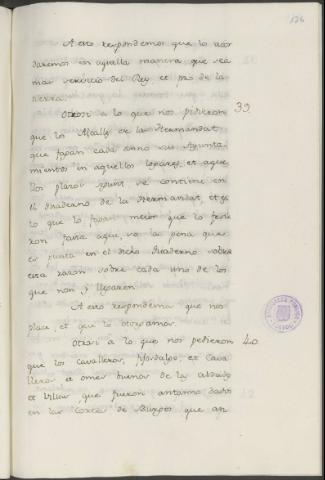 136
A esto respondemos que lo acor
daremos en aquella manera que sea
mas servicio del Rey et pro de la
tierra.
Otrosi a lo que nos pidieron 39
que los Alcalles de la Hermandat,
que fagan cada anno sus Ayunta-
mientos en aquellos logares, et aque
llos plazos segunt se contiene en
el Quaderno de la Hermandat, et
lo que lo fagan mejor que lo fecie
ron fasta aqui, so la pena que
es puesta en el dicho Quaderno sobre
esta razon sobre cada uno de los
que non y llegaren.
A esto respondemos que nos
place, et que lo otorgamos.
Otrosi a lo que nos pidieron 40
que los cavalleros, fijosdalgo, et Cava
lleros et omes buenos de las cibdades
et villas, que fueron antanno dados
en las Cortes de Burgos que an